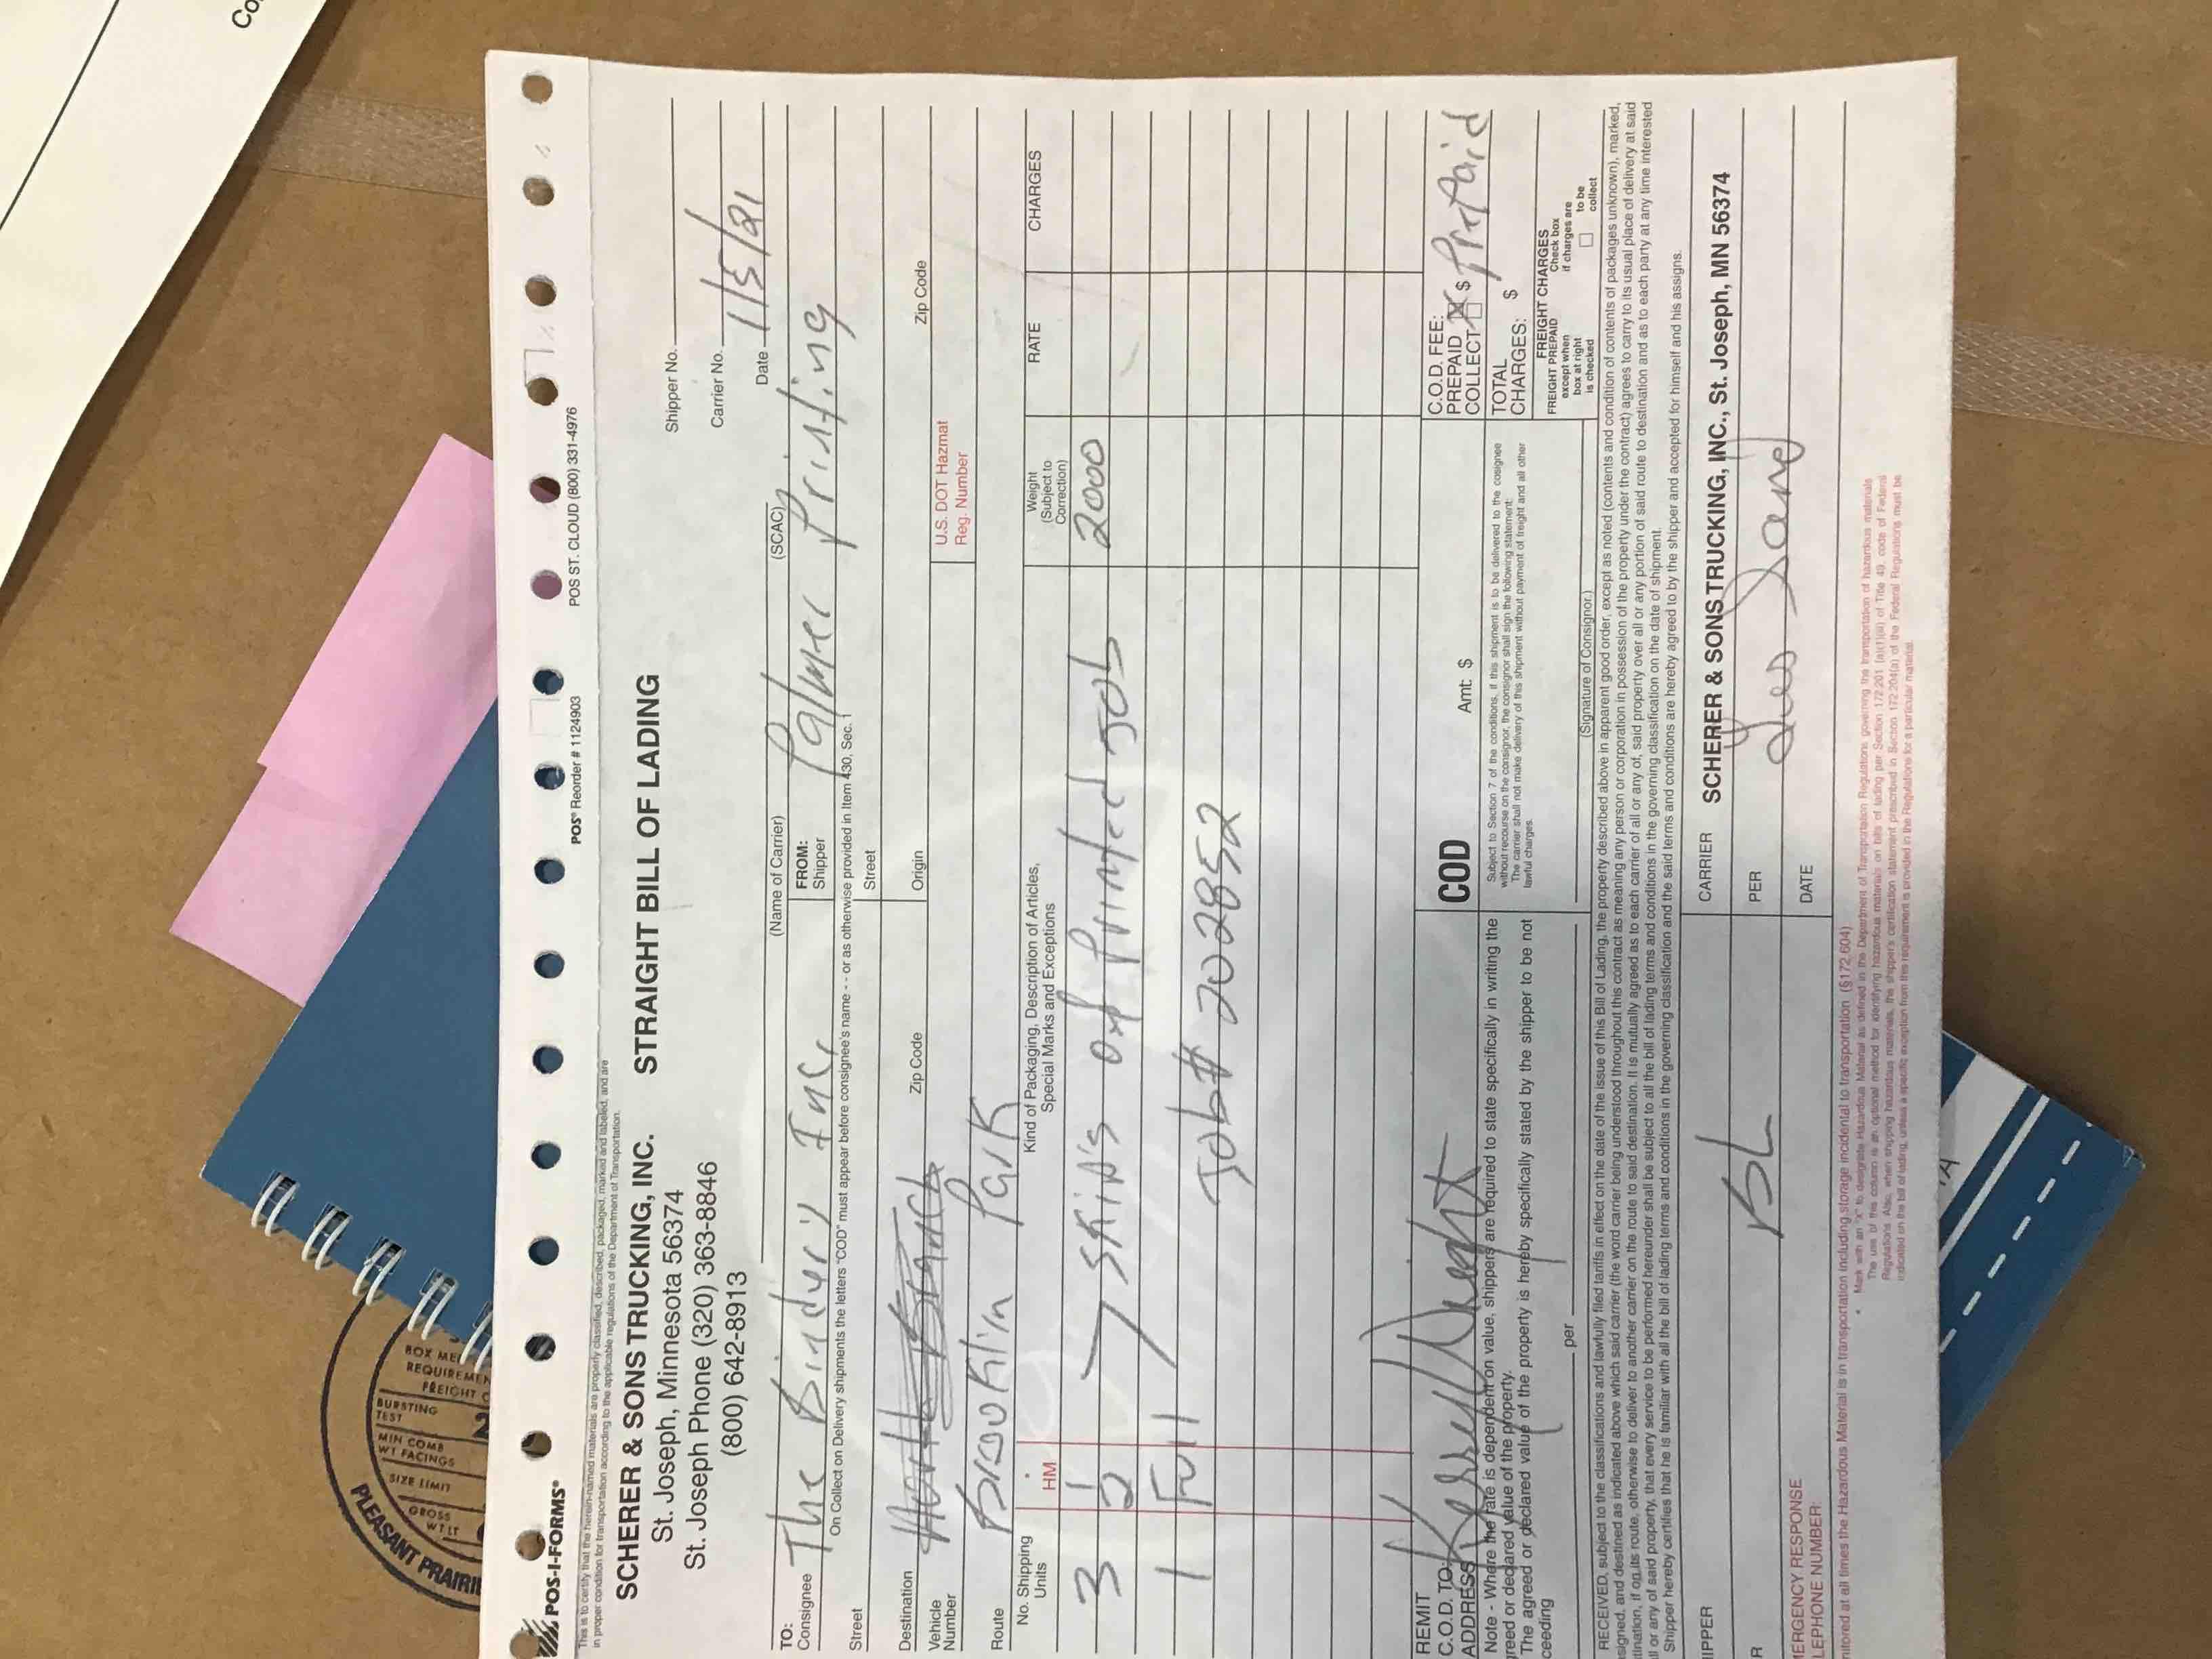 Co
POS-I-FORMS® POS® Reorder # 1124903 POS ST. CLOUD (800) 331-4976
This is to certify that the herein-named materials are properly classified, described, packaged, marked and labeled, and are
in proper condition for transportation according to the applicable regulations of the Department of Transportation.
SCHERER & SONS TRUCKING, INC. STRAIGHT BILL OF LADING
St. Joseph, Minnesota 56374
St. Joseph Phone (320) 363-8846
(800) 642-8913
Shipper No.
Carrier No.
Date 1/5/21
(Name of Carrier) (SCAC)
TO: Consignee The Bindery Inc.
FROM: Shipper Palmer Printing
On Collect on Delivery shipments the letters "COD" must appear before consignee's name - - or as otherwise provided in Item 430, Sec. 1
Street Street
Destination North Branch Zip Code Origin Zip Code
Vehicle Number
U.S. DOT Hazmat Reg. Number
Route Brooklin Park
No. Shipping Units * HM Kind of Packaging, Description of Articles, Special Marks and Exceptions Weight (Subject to Correction) RATE CHARGES
3 1/2 > Skid's of Printed Job 2000
1 Full
Job# 202852
REMIT C.O.D. TO: ADDRESS
COD Amt: $
C.O.D. FEE:
PREPAID
COLLECT $ PrePaid
Note - Where the rate is dependent on value, shippers are required to state specifically in writing the
greed or declared value of the property.
The agreed or declared value of the property is hereby specifically stated by the shipper to be not
ceeding per
Subject to Section 7 of the conditions, if this shipment is to be delivered to the cosignee
without recourse on the consignor, the consignor shall sign the following statement:
The carrier shall not make delivery of this shipment without payment of freight and all other
lawful charges.
(Signature of Consignor.)
TOTAL CHARGES: $
FREIGHT CHARGES
FREIGHT PREPAID except when box at right is checked
Check box if charges are to be collect
RECEIVED, subject to the classifications and lawfully filed tariffs in effect on the date of the issue of this Bill of Lading, the property described above in apparent good order, except as noted (contents and condition of contents of packages unknown), marked,
signed, and destined as indicated above which said carrier (the word carrier being understood throughout this contract as meaning any person or corporation in possession of the property under the contract) agrees to carry to its usual place of delivery at said
tination, if on its route, otherwise to deliver to another carrier on the route to said destination. It is mutually agreed as to each carrier of all or any of, said property over all or any portion of said route to destination and as to each party at any time interested
ll or any of said property, that every service to be performed hereunder shall be subject to all the bill of lading terms and conditions in the governing classification on the date of shipment.
Shipper hereby certifies that he is familiar with all the bill of lading terms and conditions in the governing classification and the said terms and conditions are hereby agreed to by the shipper and accepted for himself and his assigns.
IPPER CARRIER SCHERER & SONS TRUCKING, INC., St. Joseph, MN 56374
R BL PER
MERGENCY RESPONSE
LEPHONE NUMBER:
DATE
nitored at all times the Hazardous Material is in transportation including storage incidental to transportation (§172.604).
* Mark with an "X" to designate Hazardous Material as defined in the Department of Transportation Regulations governing the transportation of hazardous materials.
The use of this column is an optional method for identifying hazardous materials on bills of lading per Section 172.201 (a)(1)(iii) of Title 49, code of Federal
Regulations. Also, when shipping hazardous materials, the shipper's certification statement prescribed in Section 172.204(a) of the Federal Regulations must be
indicated on the bill of lading, unless a specific exception from this requirement is provided in the Regulations for a particular material.
BOX ME
REQUIREMEN
FREIGHT C
BURSTING TEST
MIN COMB WT FACINGS
SIZE LIMIT
GROSS WT LT
PLEASANT PRAIRI